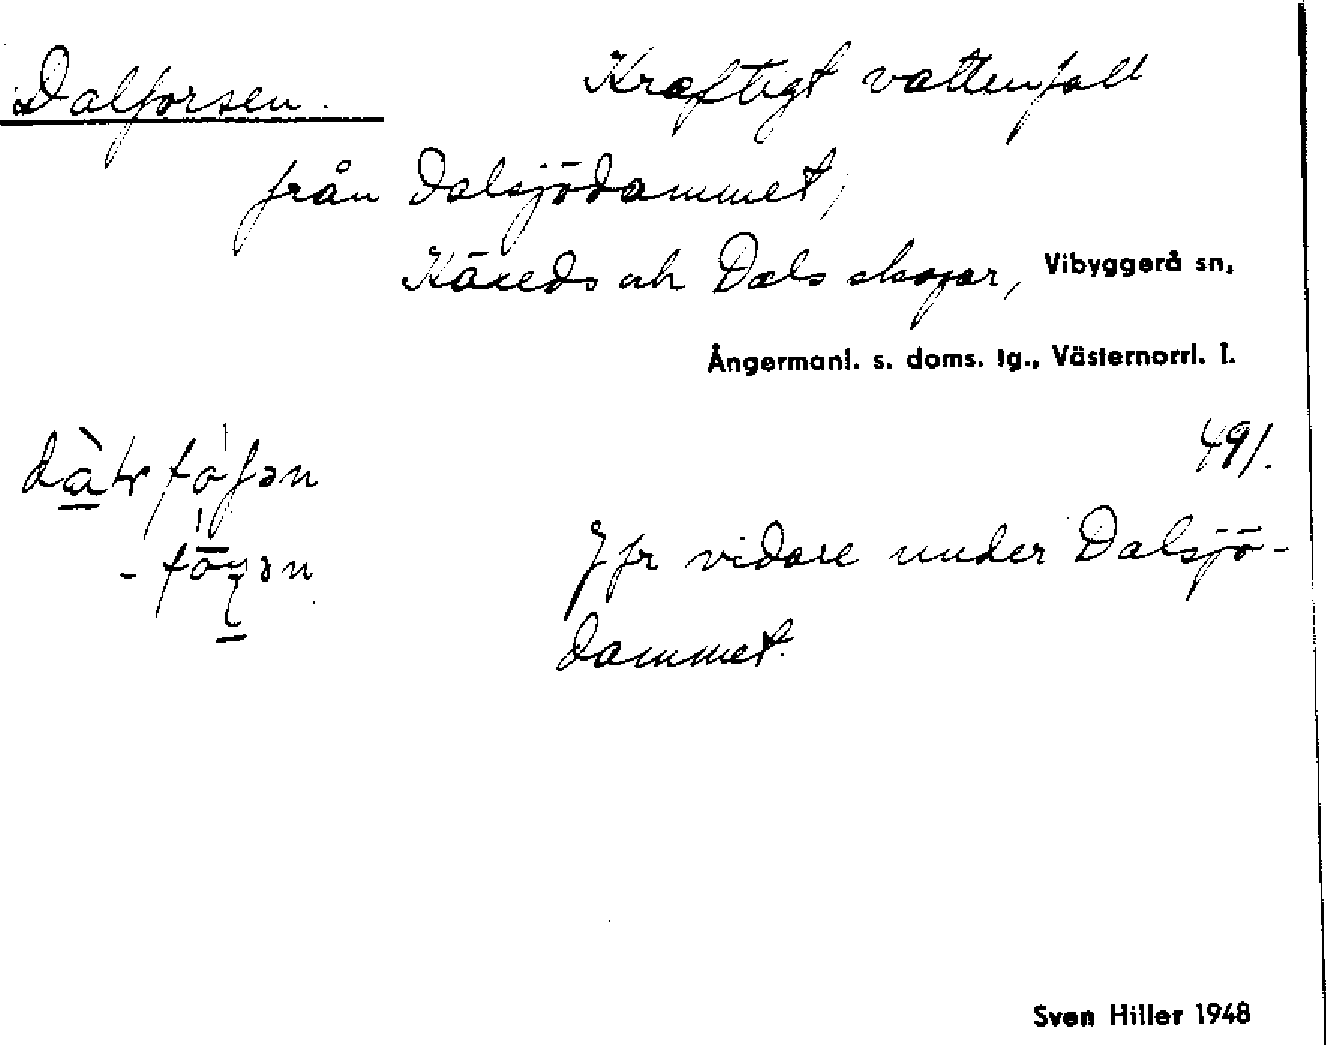 Dalforsen. Kraftigt vattenfall
från Dalsjödammet,
Käxeds och Dals skogar, Vibyggerå sn,
Ångermanl. s. doms. tg., Västernorrl. l.
491.
Jfr vidare under Dalsjö-
dammet.
Sven Hiller 1948